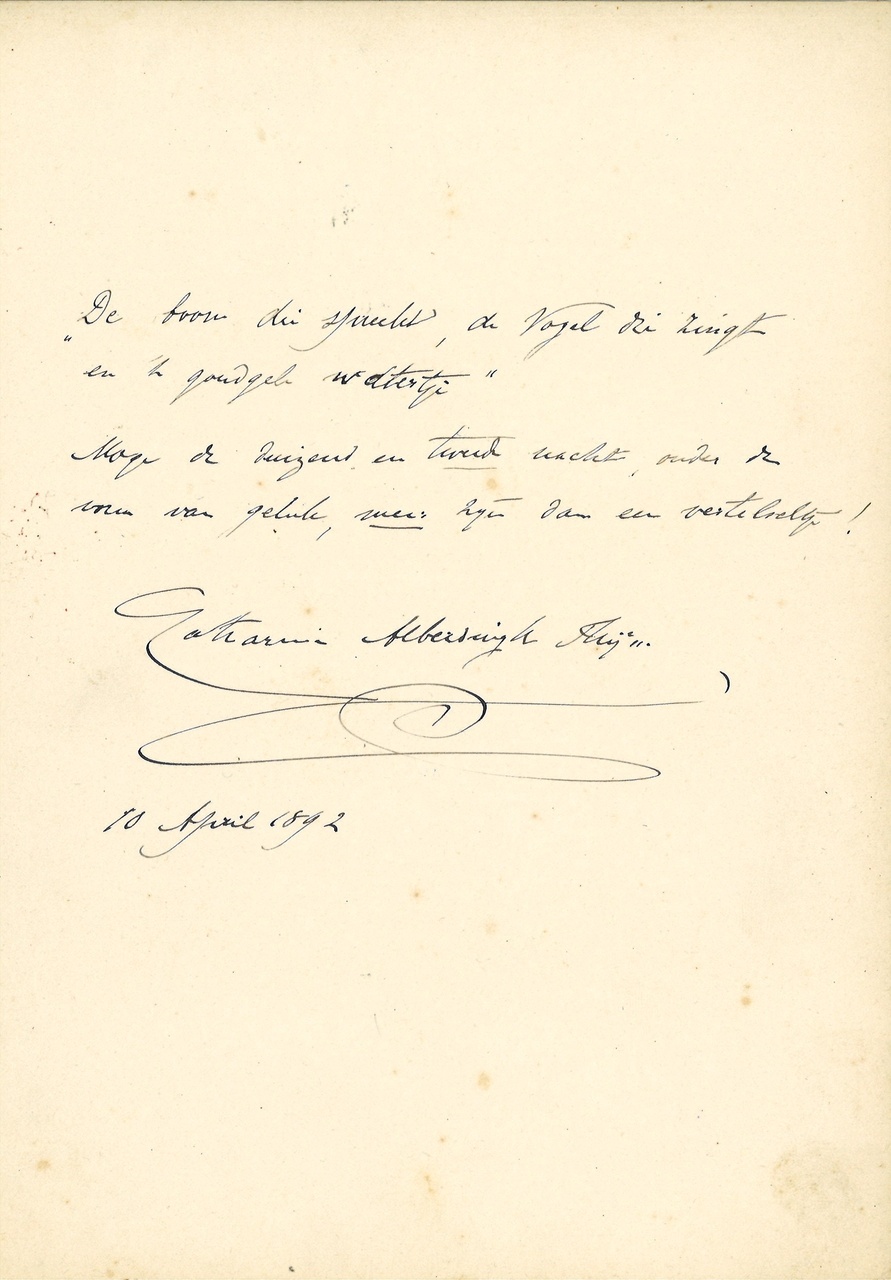 „De boom die spreekt, de Vogel die zingt
en 't goudgele watertje“
Moge de duizend en tweede nacht, onder de
vorm van geluk, meer zijn dan een vertelseltje!
Catharina Alberdingk Thijm.
10 April 1892